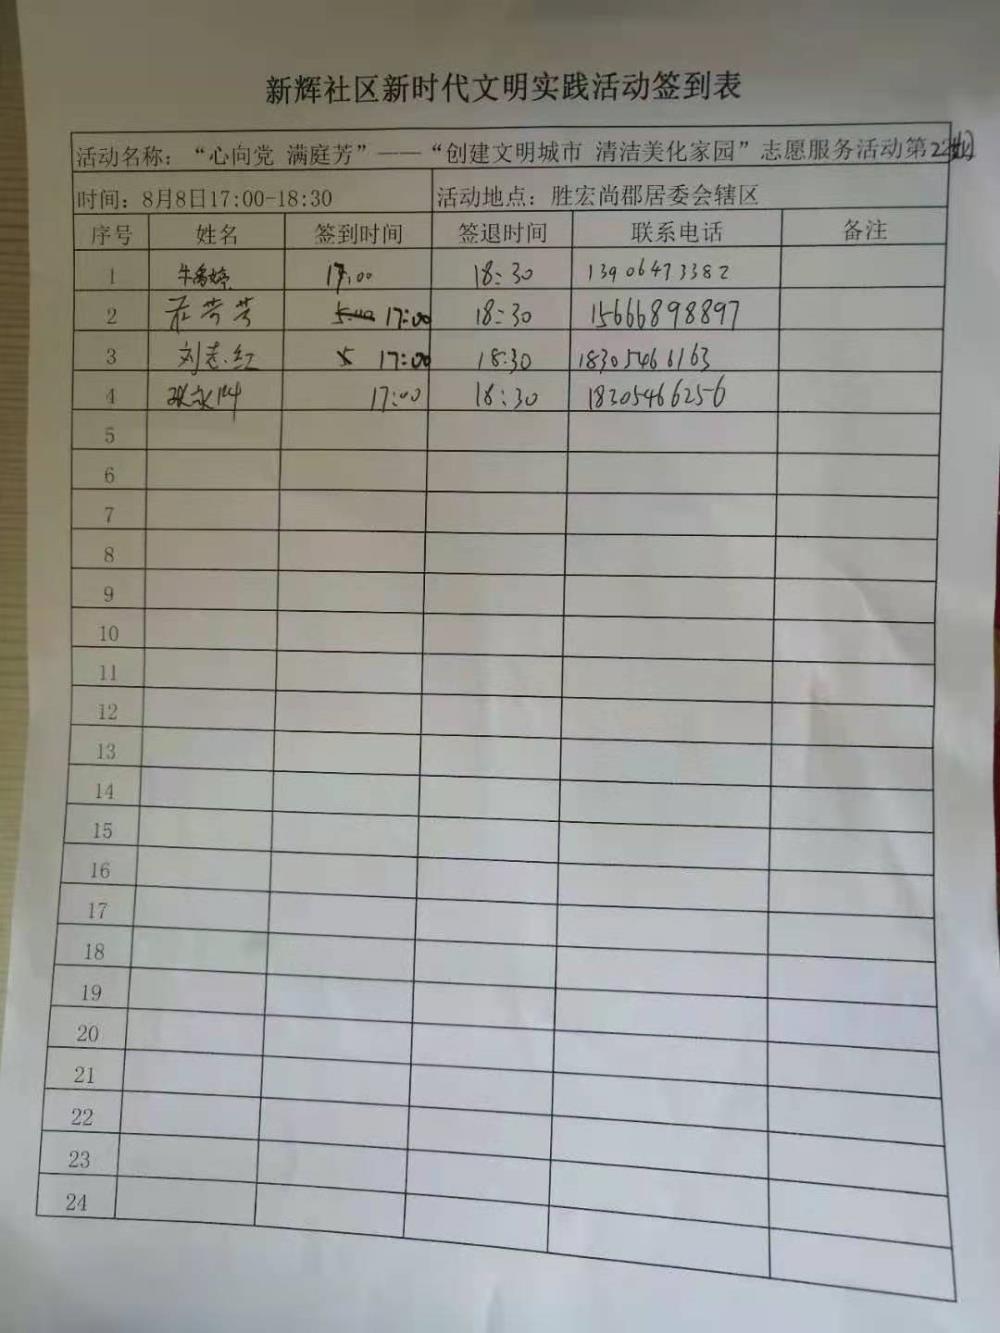 新辉社区新时代文明实践活动签到表
活动名称：“心向党 满庭芳”——“创建文明城市 清洁美化家园”志愿服务活动第22期
时间：8月8日17:00-18:30 活动地点：胜宏尚郡居委会辖区
序号 姓名 签到时间 签退时间 联系电话 备注
1 17:00 18:30 13906473382
2 芳芳 17:00 18:30 15666898897
3 刘志红 17:00 18:30 18305466163
4 17:00 18:30 18205466256
5
6
7
8
9
10
11
12
13
14
15
16
17
18
19
20
21
22
23
24